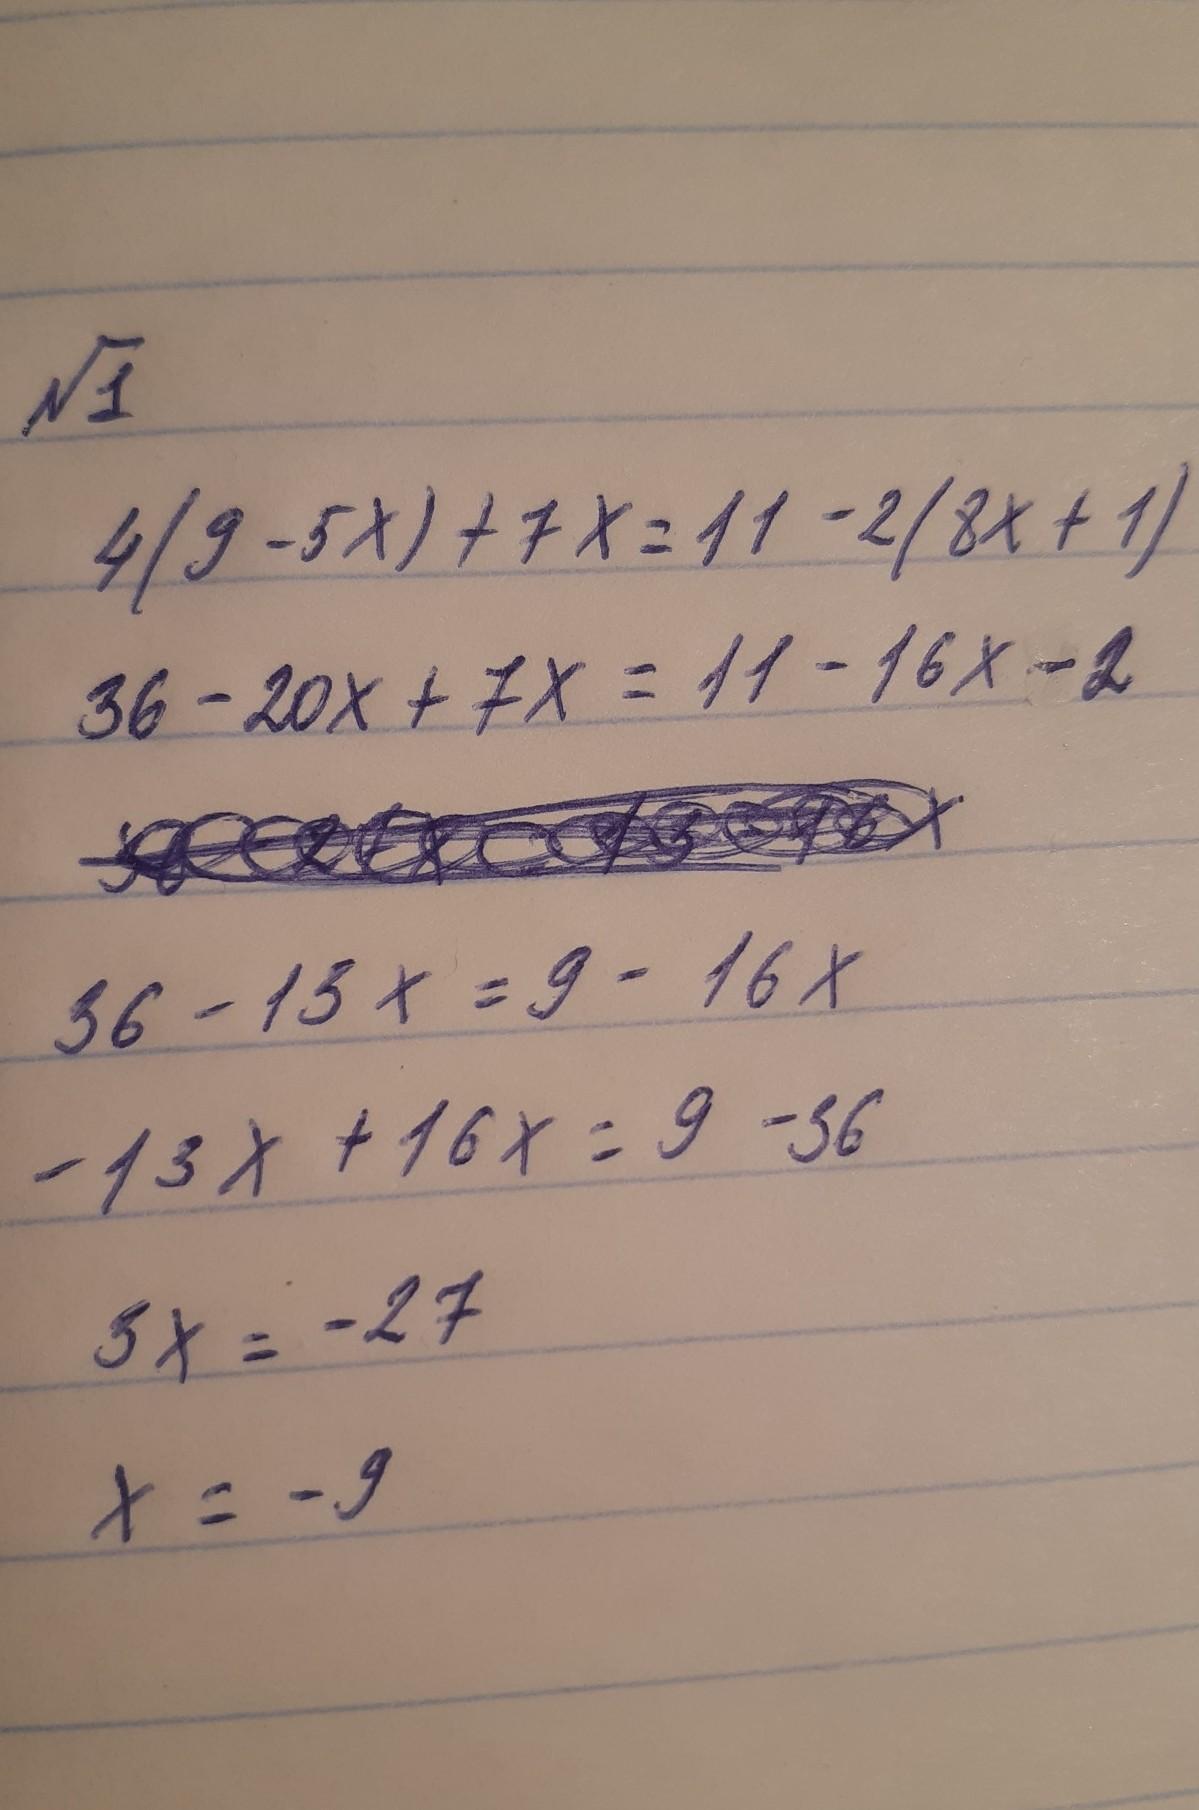 №1
4(9-5x)+7x=11-2(8x+1)
36-20x+7x=11-16x-2
36-13x=9-16x
-13x+16x=9-36
3x=-27
x=-9